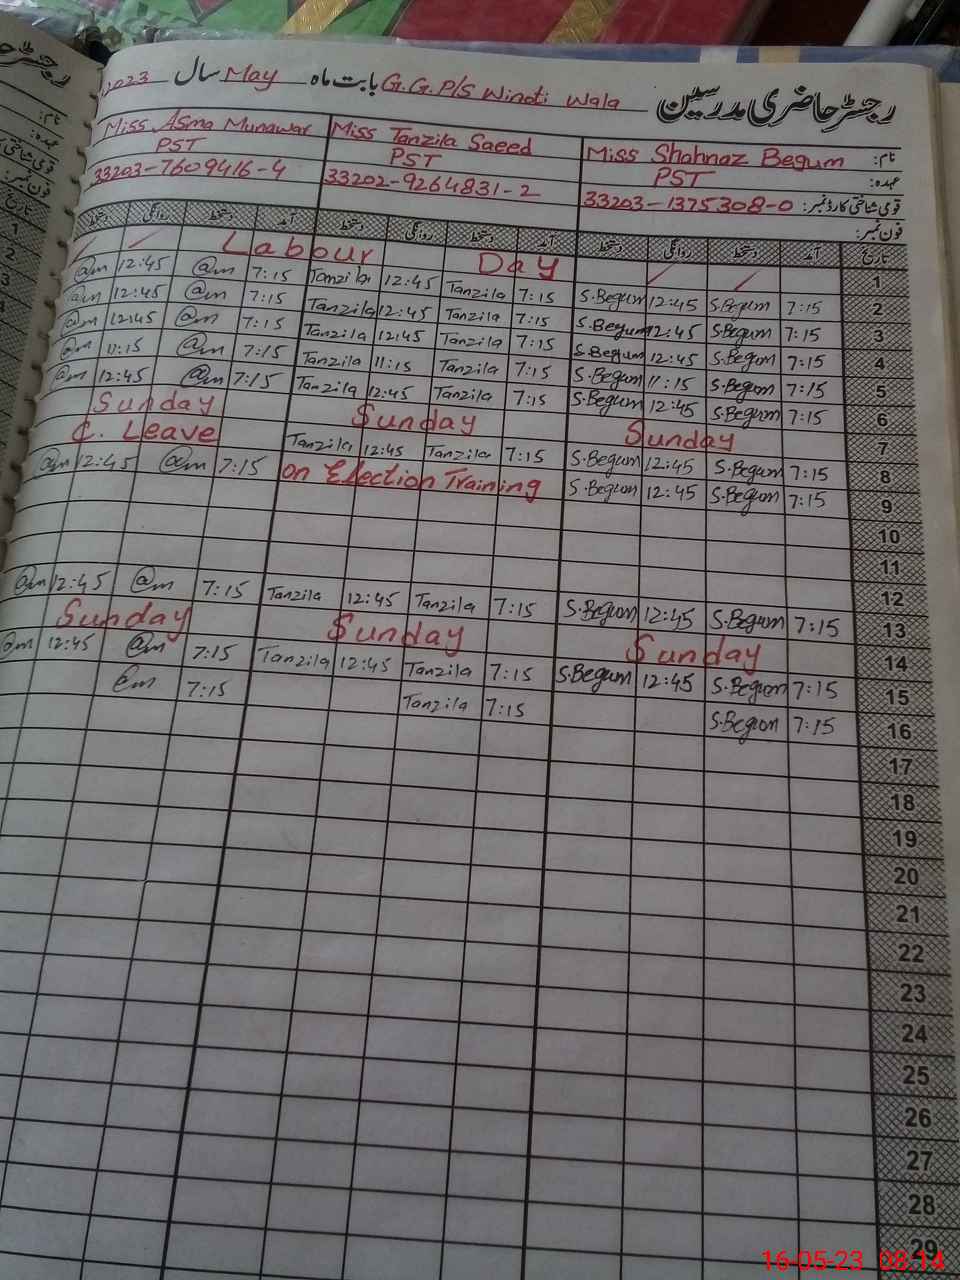 رجسٹر حاضری مدرسین G.G.P/S Winoti Wala بابت ماہ May سال 2023
نام: Miss Shahnaz Begum Miss Tanzila Saeed Miss Asma Munawar
عہدہ: PST PST PST
قومی شناختی کارڈ نمبر: 33203-1375308-0 33202-9264831-2 33203-7609416-4
فون نمبر:
تاریخ آمد دستخط روانگی دستخط آمد دستخط روانگی دستخط آمد دستخط روانگی دستخط
1 Labour Day
2 7:15 S.Begum 12:45 S.Begum 7:15 Tanzila 12:45 Tanzila 7:15 @m 12:45 @m
3 7:15 S.Begum 12:45 S.Begum 7:15 Tanzila 12:45 Tanzila 7:15 @m 12:45 @m
4 7:15 S.Begum 12:45 S.Begum 7:15 Tanzila 12:45 Tanzila 7:15 @m 12:45 @m
5 7:15 S.Begum 11:15 S.Begum 7:15 Tanzila 11:15 Tanzila 7:15 @m 11:15 @m
6 7:15 S.Begum 12:45 S.Begum 7:15 Tanzila 12:45 Tanzila 7:15 @m 12:45 @m
7 Sunday Sunday Sunday
8 7:15 S.Begum 12:45 S.Begum 7:15 Tanzila 12:45 Tanzila C. Leave
9 7:15 S.Begum 12:45 S.Begum on Election Training 7:15 @m 12:45 @m
10
11
12
13 7:15 S.Begum 12:45 S.Begum 7:15 Tanzila 12:45 Tanzila 7:15 @m 12:45 @m
14 Sunday Sunday Sunday
15 7:15 S.Begum 12:45 S.Begum 7:15 Tanzila 12:45 Tanzila 7:15 @m 12:45 @m
16 7:15 S.Begum 7:15 Tanzila 7:15
17
18
19
20
21
22
23
24
25
26
27
28
29
16-05-23 08:14